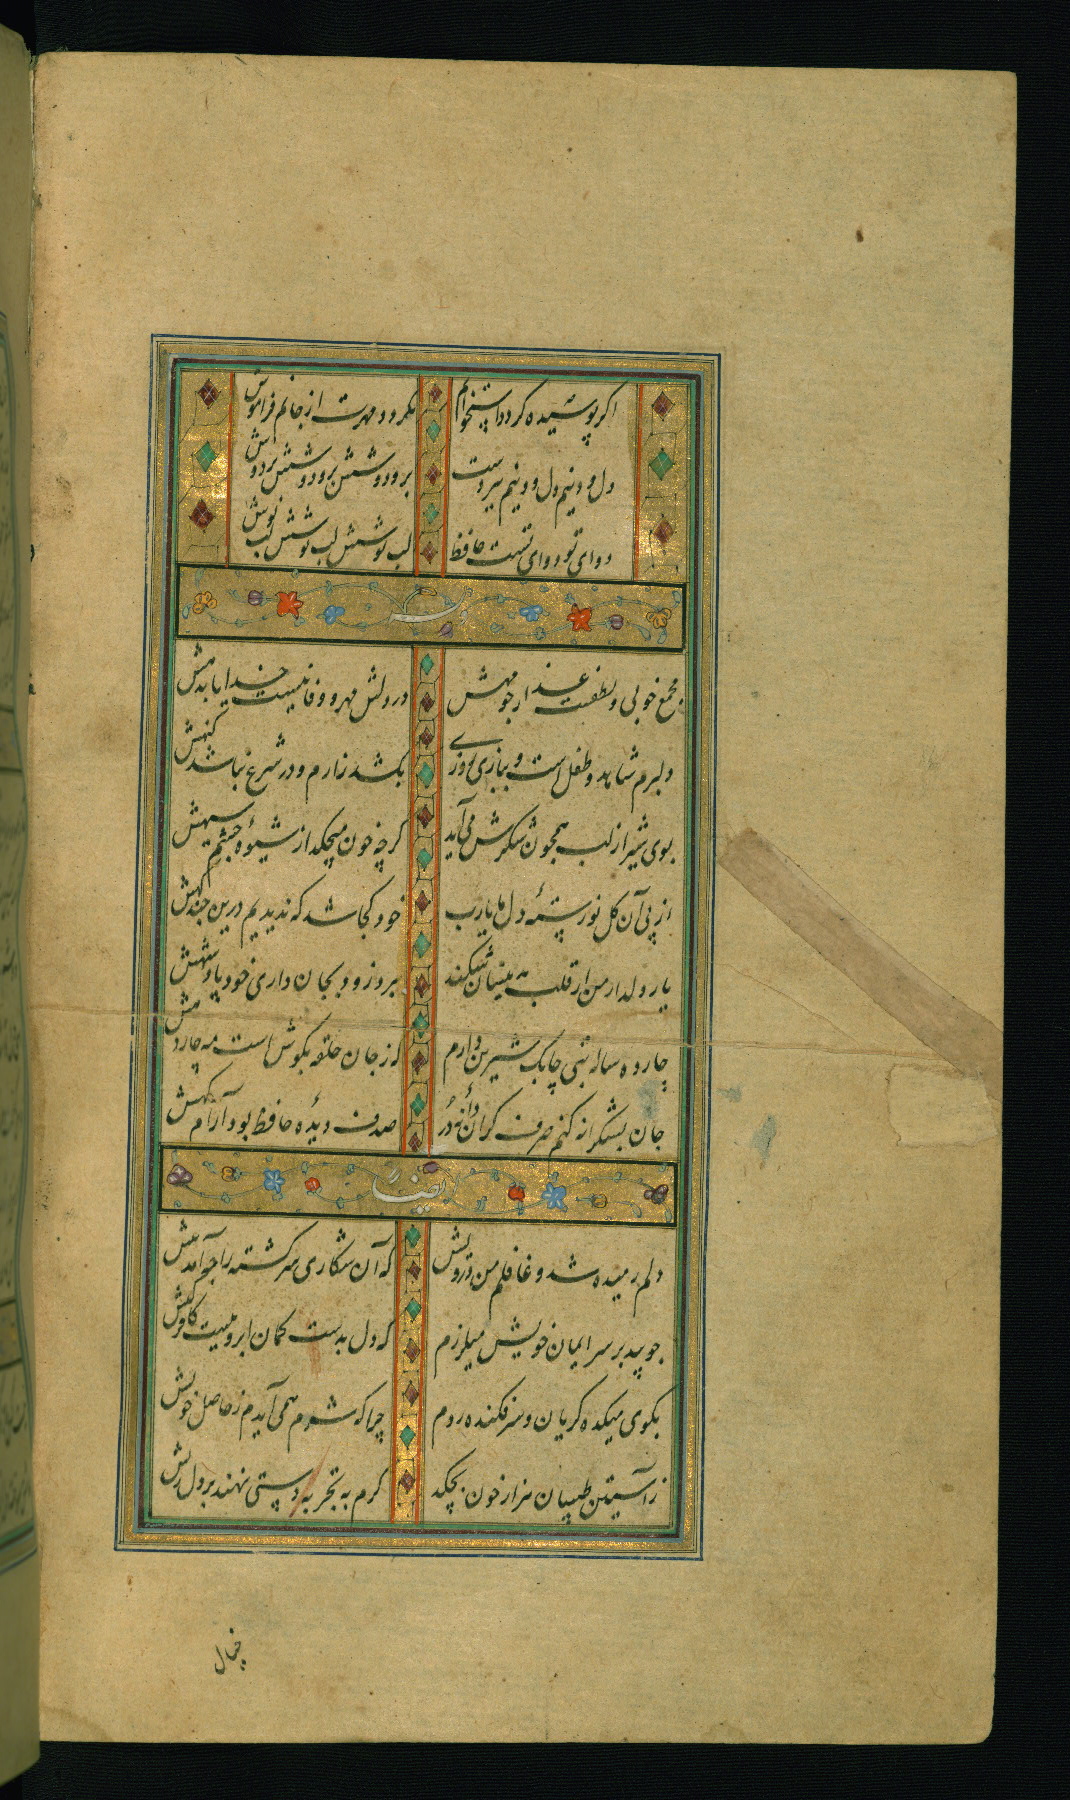 اگر پوشیده گردد استخوانم نگردد مهرت از جانم فراموش
دل و دینم دل و دینم ببردست برو دوشش برو دوشش بر دوش
دوای تو دوای تست حافظ لب نوشش لب نوشش لب نوش
وله
مجمع خوبی و لطفست عذار چو مهش در دلش مهر و وفا نیست خدایا بدهش
دلبرم شاهد و طفل است و ببازی روزی بکشد زارم و در شرع نباشد گنهش
بوی شیر از لب همچون شکرش می آید گرچه خون میچکد از شیوه چشم سیهش
از پی آن گل نورسته دل ما یارب خود کجا شد که ندیدیم درین چند گهش
یار دلدار من ار قلب بدینسان شکند ببرد زود بجان داری خود پادشهش
چارده ساله بتی چابک شیرین دارم که ز جان حلقه بگوش است مه چاردهش
جان بشکرانه کنم صرف گر آن دانه در صدف دیده حافظ بود آرامگهش
ایضا
دلم رمیده شد و غافلم من درویش که آن شکاری سرگشته را چه آمد پیش
چو بید بر سر ایمان خویش میلرزم که دل بدست کمان ابرویست کافرکیش
بکوی میکده گریان و سرفکنده روم چرا که شرم همی آیدم ز حاصل خویش
ز آستین طبیبان هزار خون بچکد گرم به تجربه دستی نهند بر دل ریش
خیال